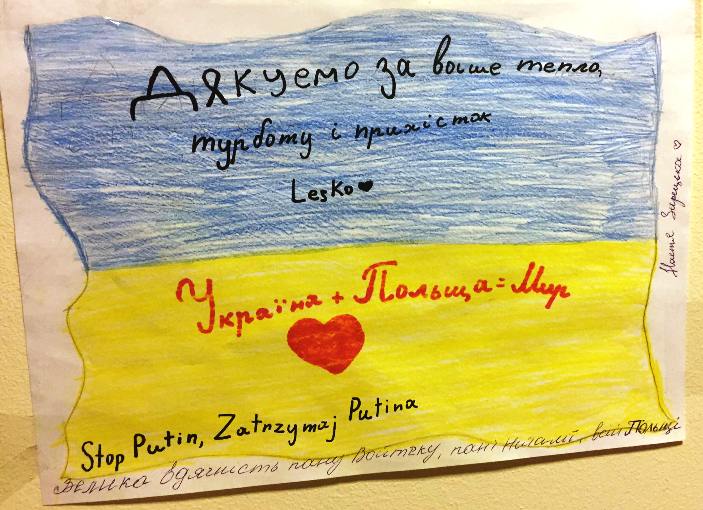 Дякуємо за ваше тепло,
турботу і прихісток
Lesko
Україна + Польща = Мир
Stop Putin, Zatrzymaj Putina
Велика вдячність пану Войтеку, пані всій Польщі
Настя Зарецька